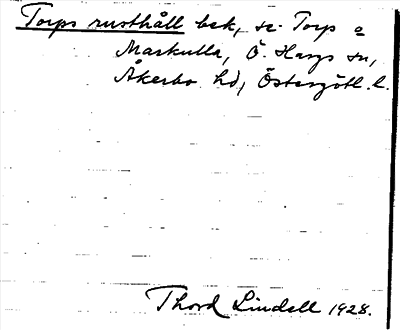 Torps rusthåll bek, se Torp o
Markulla, Ö. Hargs sn,
Åkerbo hd, Östergötl. l.
Thord Lindell 1928.